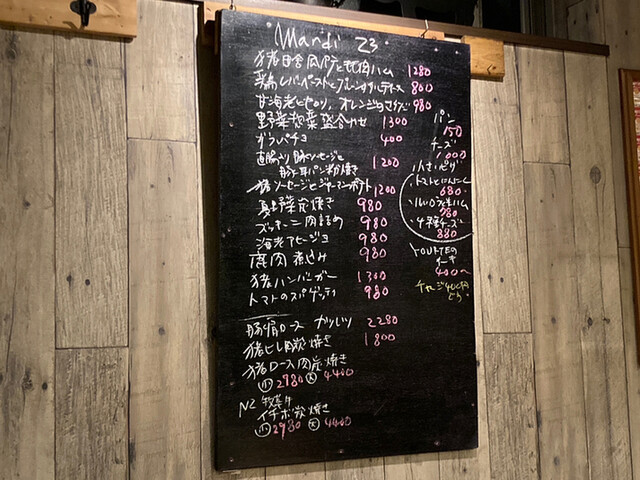 Mardi 23
猪田舎風パテと花肉ハム 1280
鶏レバーペーストとプルーン 800
甘海老とセロリ、オレンジのサラダ 980
野菜惣菜盛合わせ 1300
ガスパチョ 400
直腸入り豚ソーセージと
豚耳パン粉焼き 1200
猪ソーセージとジャーマンポテト 1200
夏野菜炭焼き 980
ズッキーニ肉詰め 980
海老アヒージョ 980
鹿肉煮込み 980
猪ハンバーガー 1300
トマトのスパゲッティ 980
豚肩ロース カツレツ 2280
猪ヒレ肉炭焼き 1800
猪ロース肉炭焼き
小 2780 大 4400
NZ 牧草牛
イチボ炭焼き
小 2980 大 4400
パン
150
チーズ
1000
小さいピザ
トマトとにんにく
680
780
4種チーズ
880
TOURTEの
ケーキ
400〜
チャージ400円